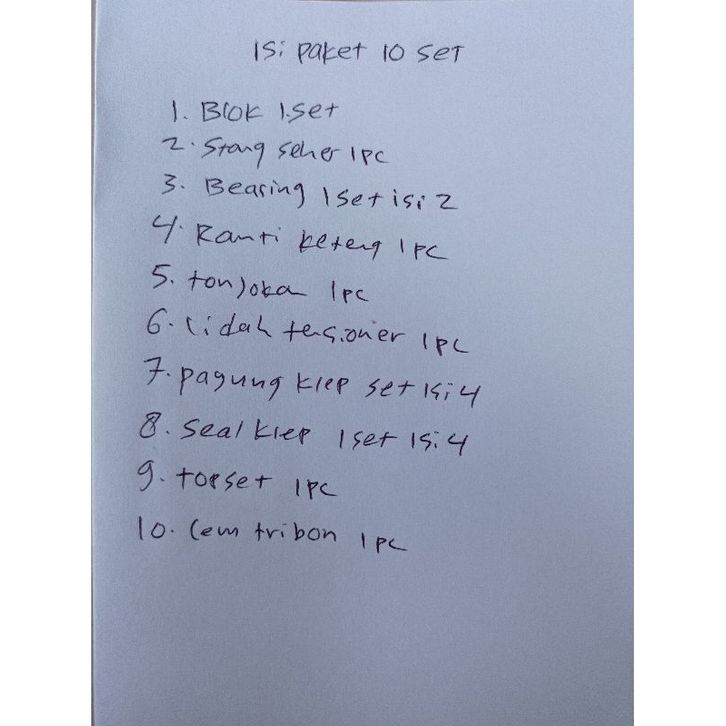 Isi paket 10 set
1. Blok 1.set
2. Stang seher 1 pc
3. Bearing 1 set isi 2
4. Ranti keteng 1 pc
5. tonjokan 1pc
6. Lidah tensioner 1 pc
7. payung klep set isi 4
8. Seal klep 1 set isi 4
9. topset 1 pc
10. Lem tribon 1 pc